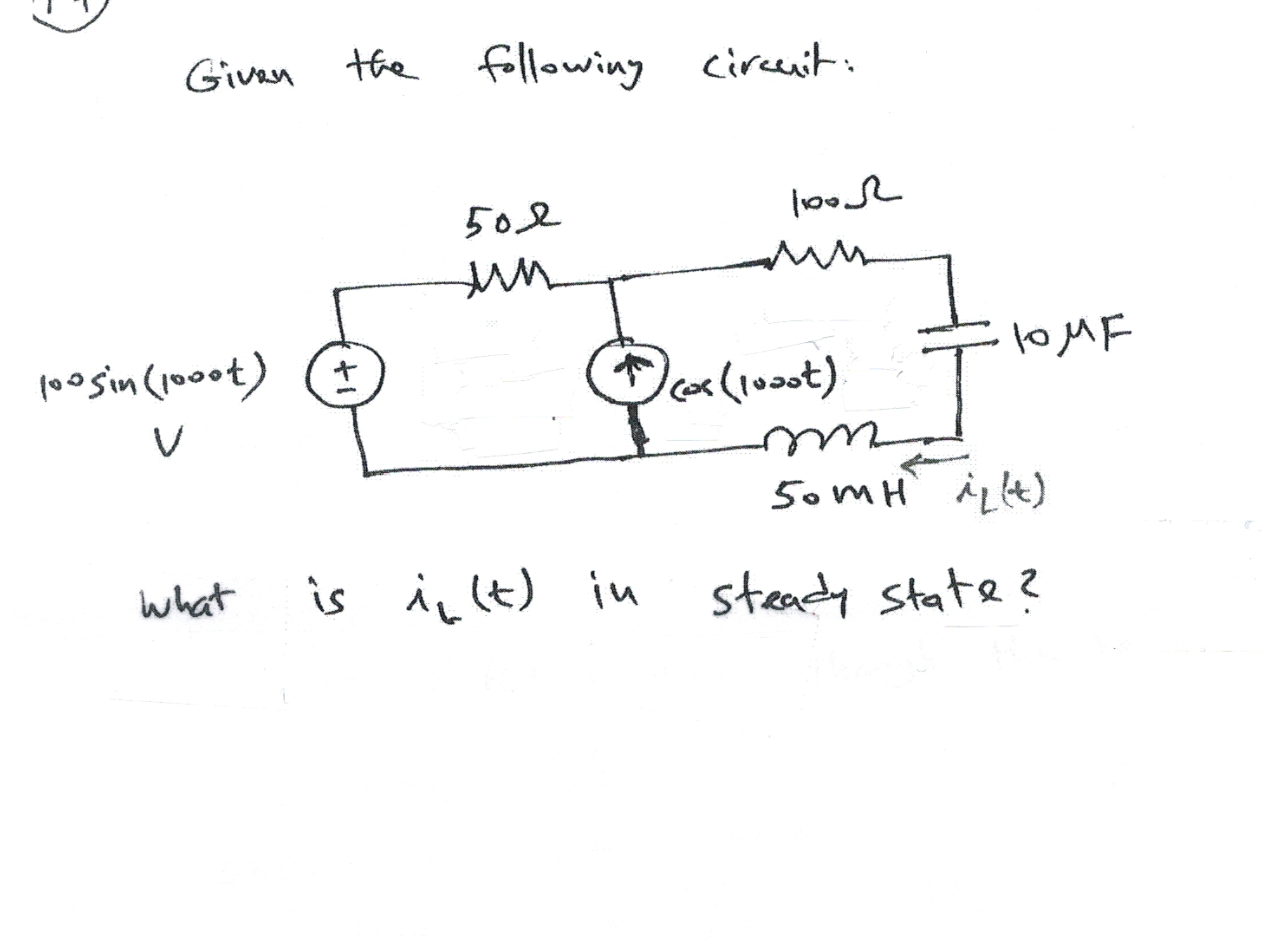 Given the following circuit:
50Ω
100Ω
100sin(1000t)
V
+
-
cos(1000t)
10μF
50mH
iL(t)
what is iL(t) in steady state?